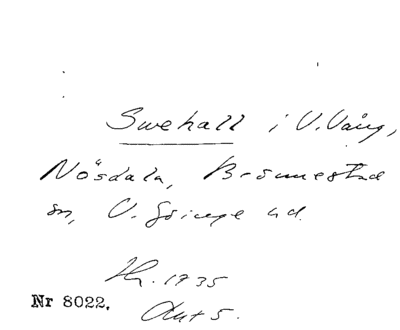 Swehall i V. Vång,
Nösdala, Brönnestad
sn, V. Göinge hd.
Hr. 1735
Nr 8022.
Avt 5.